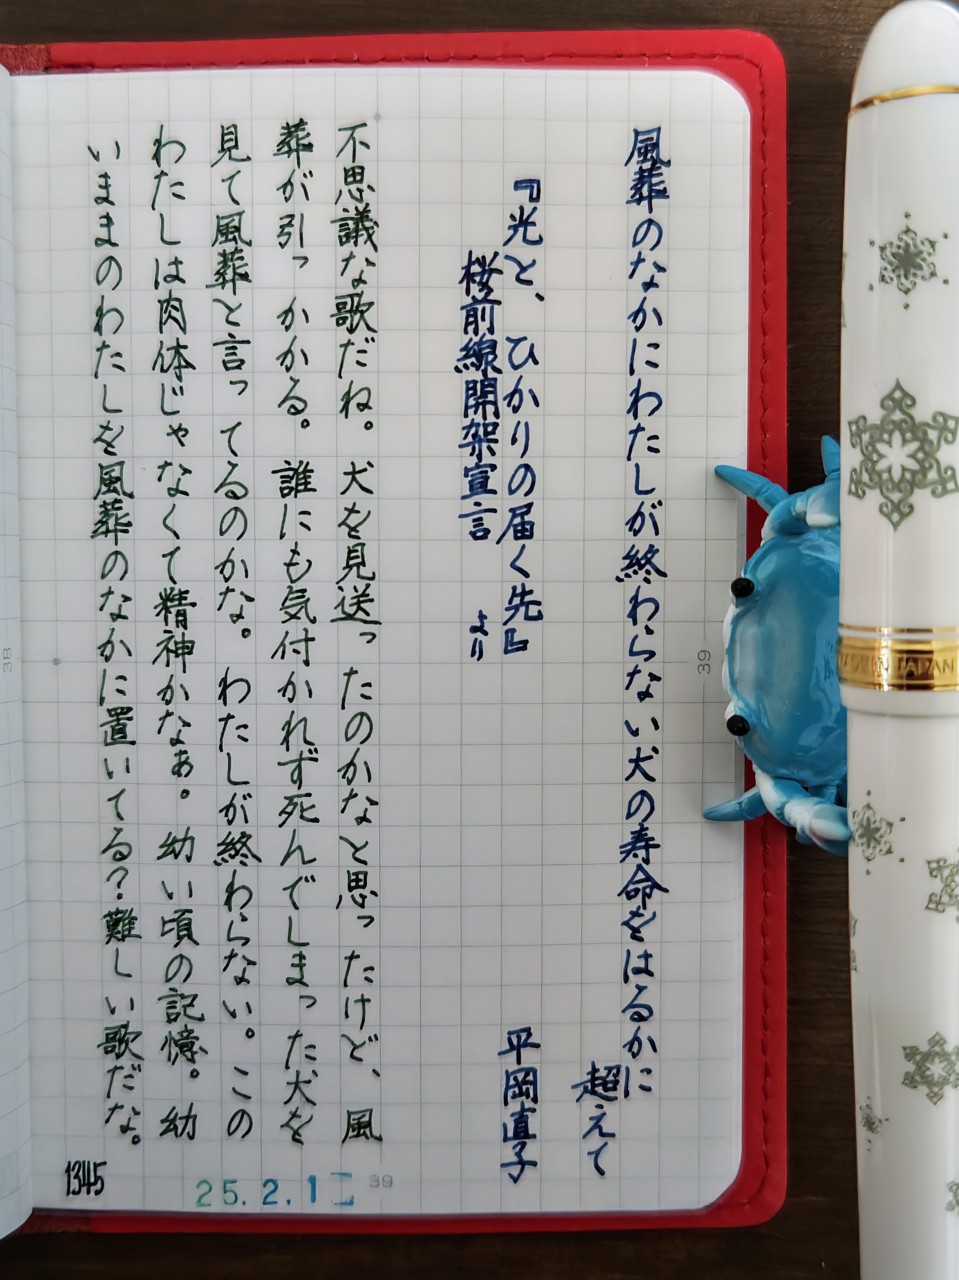 風葬のなかにわたしが終わらない犬の寿命をはるかに
超えて
平岡直子
『光と、ひかりの届く先』
桜前線開架宣言 より
不思議な歌だね。犬を見送ったのかなと思ったけど、風
葬が引っかかる。誰にも気付かれず死んでしまった犬を
見て風葬と言ってるのかな。わたしが終わらない。この
わたしは肉体じゃなくて精神かなぁ。幼い頃の記憶。幼
いままのわたしを風葬のなかに置いてる?難しい歌だな。
1345
25.2.1
39
39
38